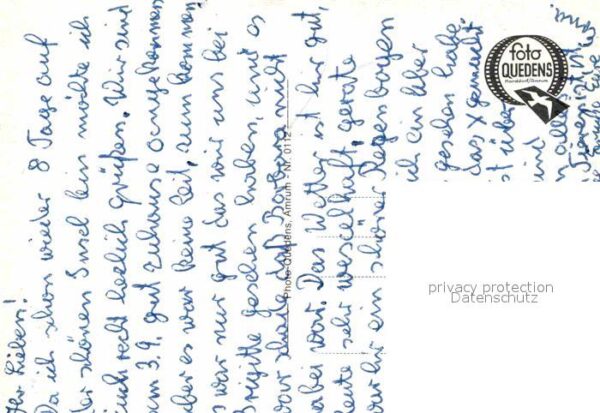 Ihr Lieben!
Da ich schon wieder 8 Tage auf
der schönen Insel bin möchte ich
Euch recht herlich grüßen. Wir sind
am 3.9. gut zuhause angekommen
aber es war keine Zeit, zum kommen
es war nur gut das wir uns bei
Brigitte gesehen haben, und es
war schade daß Barbara nicht
dabei war. Das Wetter ist hir gut,
heute sehr weselhaft, gerate
war hir ein schöner Regenbogen
ich ein über
gesehen habe
das, X gemacht
ist über
und
in alles ist in
foto
QUEDENS
Norddorf/Amrum
Photo-Quedens, Amrum - Nr. 0112
privacy protection
Datenschutz